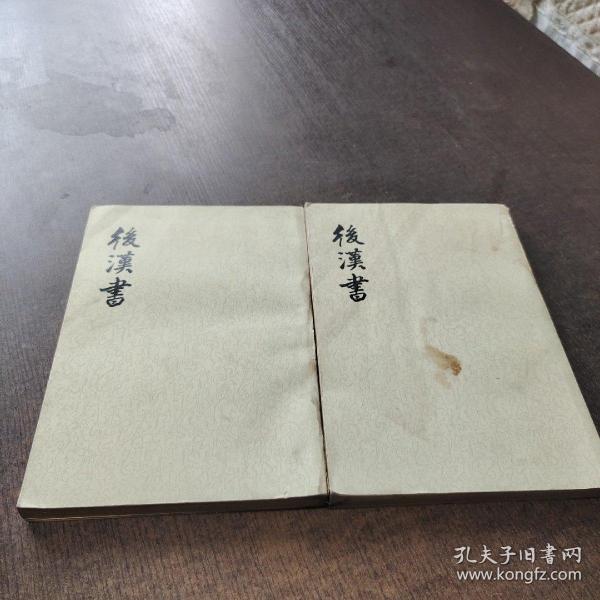 後漢書
後漢書
孔夫子旧书网
www.kongfz.com